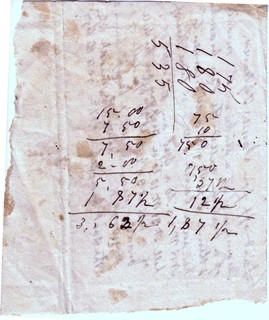 1 75
1 80
1 80
5 35
15,00
7,50
7,50
2,00
5,50
1 87½
3,62½
75
10
750
750
37½
12½
1,87½